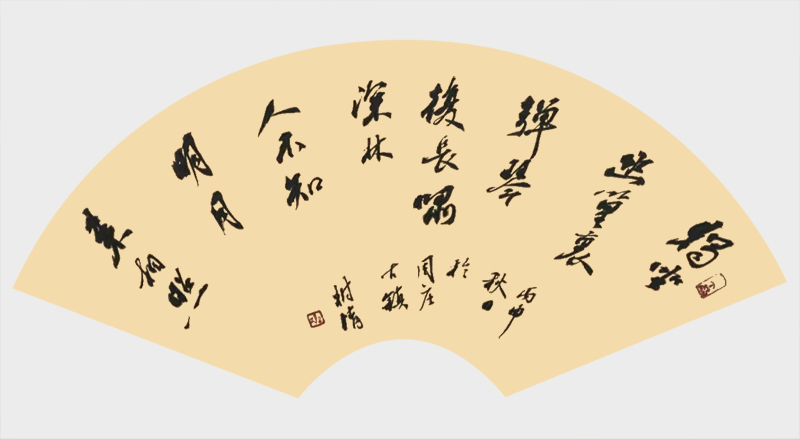 獨坐
幽篁裏
彈琴
復長嘯
深林
人不知
明月
來相照
丙申
秋日
於
周庄
古鎮